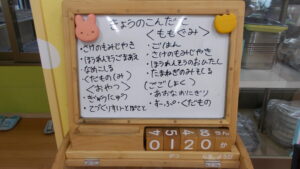 きょうのこんだて
くももぐみ＞
・さけのみそじやき
・ほうれんそうごまあえ
・なめこじる
・くだもの（み）
（おやつ）
・ぎゅうにゅう
・てづくりすいーとぽてと
・ごはん
・さけのみそじやき
・ほうれんそうのおひたし
・たまねぎのみそしる
（ごごしょく）
・あおなおにぎり
・すーぷ・くだもの